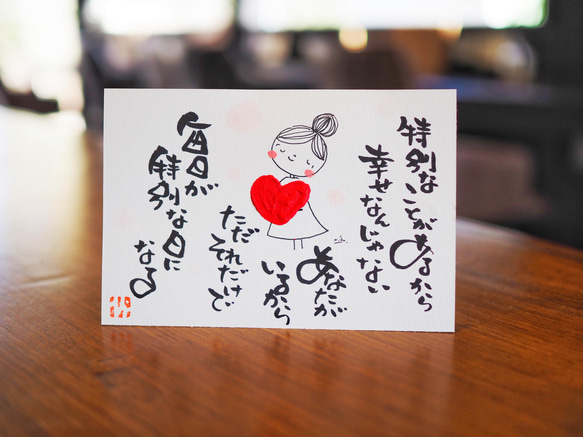 特別なことがあるから
幸せなんじゃない
あなたが
いるから
ただ
それだけで
毎日が
特別な日に
なる